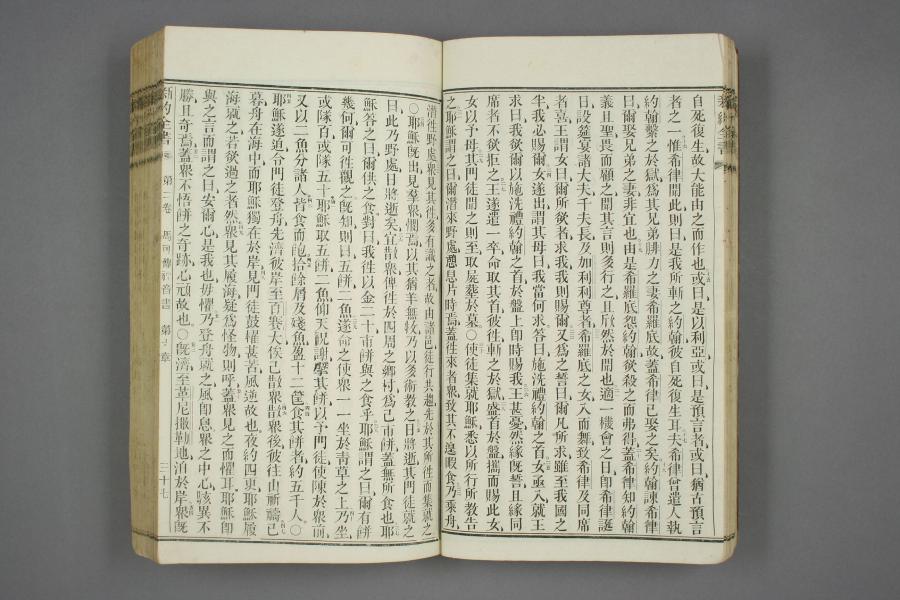 自死復生故大能由之而作也或曰是以利亞或曰是預言者或曰猶古預言
者之一惟希律聞此則曰是我所斬之約翰彼自死復生耳夫希律曾遣人執
約翰繫之於獄爲其兄弟腓力之妻希羅底故蓋希律已娶之矣約翰諫希律
曰爾娶兄弟之妻非宜也由是希羅底怨約翰欲殺之而弗得蓋希律知約翰
義且聖畏而顧之聞其言則多行之且欣然於聞也適一機會之日即希律誕
日設筵宴諸大夫千夫長及加利利尊者希羅底之女入而舞致希律及同席
者喜王謂女曰爾所欲者求我我則賜爾又爲之誓曰爾凡所求雖至我國之
半我必賜爾女遂出謂其母曰我當何求答曰施洗禮約翰之首女亟入就王
求曰我欲爾以施洗禮約翰之首於盤上即時賜我王甚憂然緣既誓且緣同
席者不欲拒之王遂遣一卒命取其首彼往斬之於獄盛首於盤攜而賜此女
女以予母其門徒聞之則至取屍葬於墓○使徒集就耶穌悉以所行所教告
之耶穌謂之曰爾潛來野處憩息片時焉蓋往來者衆致其不遑暇食乃乘舟
潛往野處衆見其往多有識之者故由諸邑徒行共趨先於其所往而集就之
○耶穌既出見羣衆憫焉以其猶羊無牧乃以多術教之日將逝其門徒就之
曰此乃野處日將逝矣宜散衆俾往於四周之鄉村爲己市餅蓋無所食也耶
穌答之曰爾供之食對曰我往以金二十市餅與之食乎耶穌謂之曰爾有餅
幾何爾可往觀之既知則曰五餅二魚遂命之使衆一一坐於靑草之上乃坐
或隊百或隊五十耶穌取五餅二魚仰天祝謝擘其餅以予門徒使陳於衆前
又以二魚分諸人皆食而飽拾餘屑及殘魚盈十二筐食其餅者約五千人○
耶穌遂迫令門徒登舟先濟彼岸至百賽大俟己散衆散衆後彼往山祈禱已
暮舟在海中而耶穌獨在於岸見門徒鼓櫂甚苦風逆故也夜約四更耶穌履
海就之若欲過之者然衆見其履海疑爲怪物則呼蓋衆見之而懼耳耶穌即
與之言而謂之曰安爾心是我也毋懼乃登舟就之風即息衆之中心駭異不
勝且奇焉蓋衆不悟餅之奇跡心頑故也○既濟至革尼撒勒地泊於岸衆既
新約全書
第二卷
馬可傳福音書
第六章
三十七